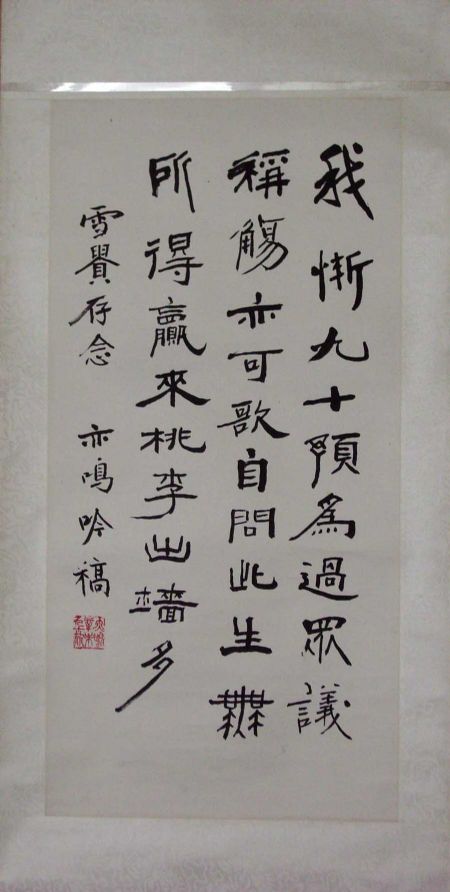 我慚九十預爲過眾議
稱觴亦可歌自問此生無
所得贏來桃李出墻多
雪存念 亦鳴吟稿